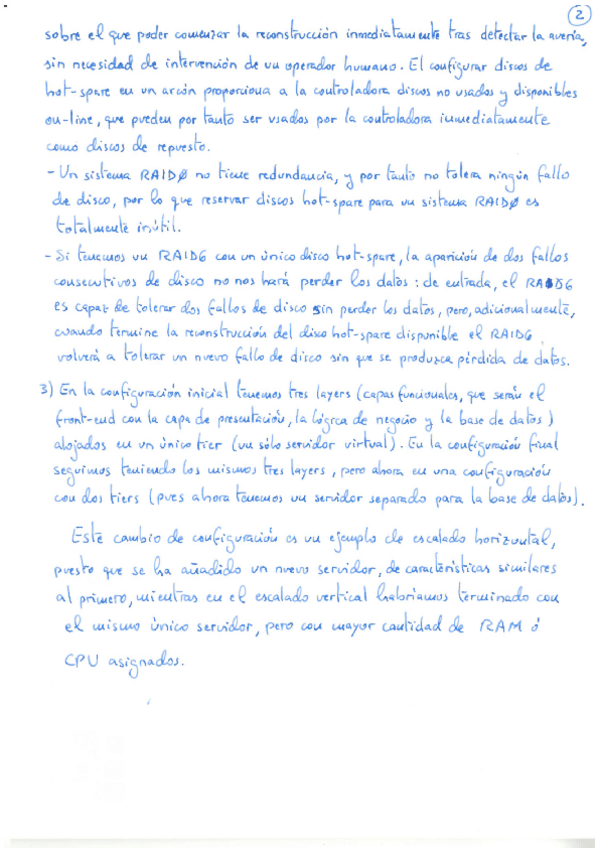 2
sobre el que poder comenzar la reconstrucción inmediatamente tras detectar la avería,
sin necesidad de intervención de un operador humano. El configurar discos de
hot-spare en un arcón proporciona a la controladora discos no usados y disponibles
on-line, que pueden por tanto ser usados por la controladora inmediatamente
como discos de repuesto.
- Un sistema RAIDØ no tiene redundancia, y por tanto no tolera ningún fallo
de disco, por lo que reservar discos hot-spare para un sistema RAIDØ es
totalmente inútil.
- Si tenemos un RAID6 con un único disco hot-spare, la aparición de dos fallos
consecutivos de disco no nos hará perder los datos: de entrada, el RAID6
es capaz de tolerar dos fallos de disco sin perder los datos, pero, adicionalmente,
cuando termine la reconstrucción del disco hot-spare disponible el RAID6
volverá a tolerar un nuevo fallo de disco sin que se produzca pérdida de datos.
3) En la configuración inicial tenemos tres layers (capas funcionales, que serán el
front-end con la capa de presentación, la lógica de negocio y la base de datos)
alojados en un único tier (un sólo servidor virtual). En la configuración final
seguimos teniendo los mismos tres layers, pero ahora en una configuración
con dos tiers (pues ahora tenemos un servidor separado para la base de datos).
Este cambio de configuración es un ejemplo de escalado horizontal,
puesto que se ha añadido un nuevo servidor, de características similares
al primero, mientras en el escalado vertical habríamos terminado con
el mismo único servidor, pero con mayor cantidad de RAM ó
CPU asignados.